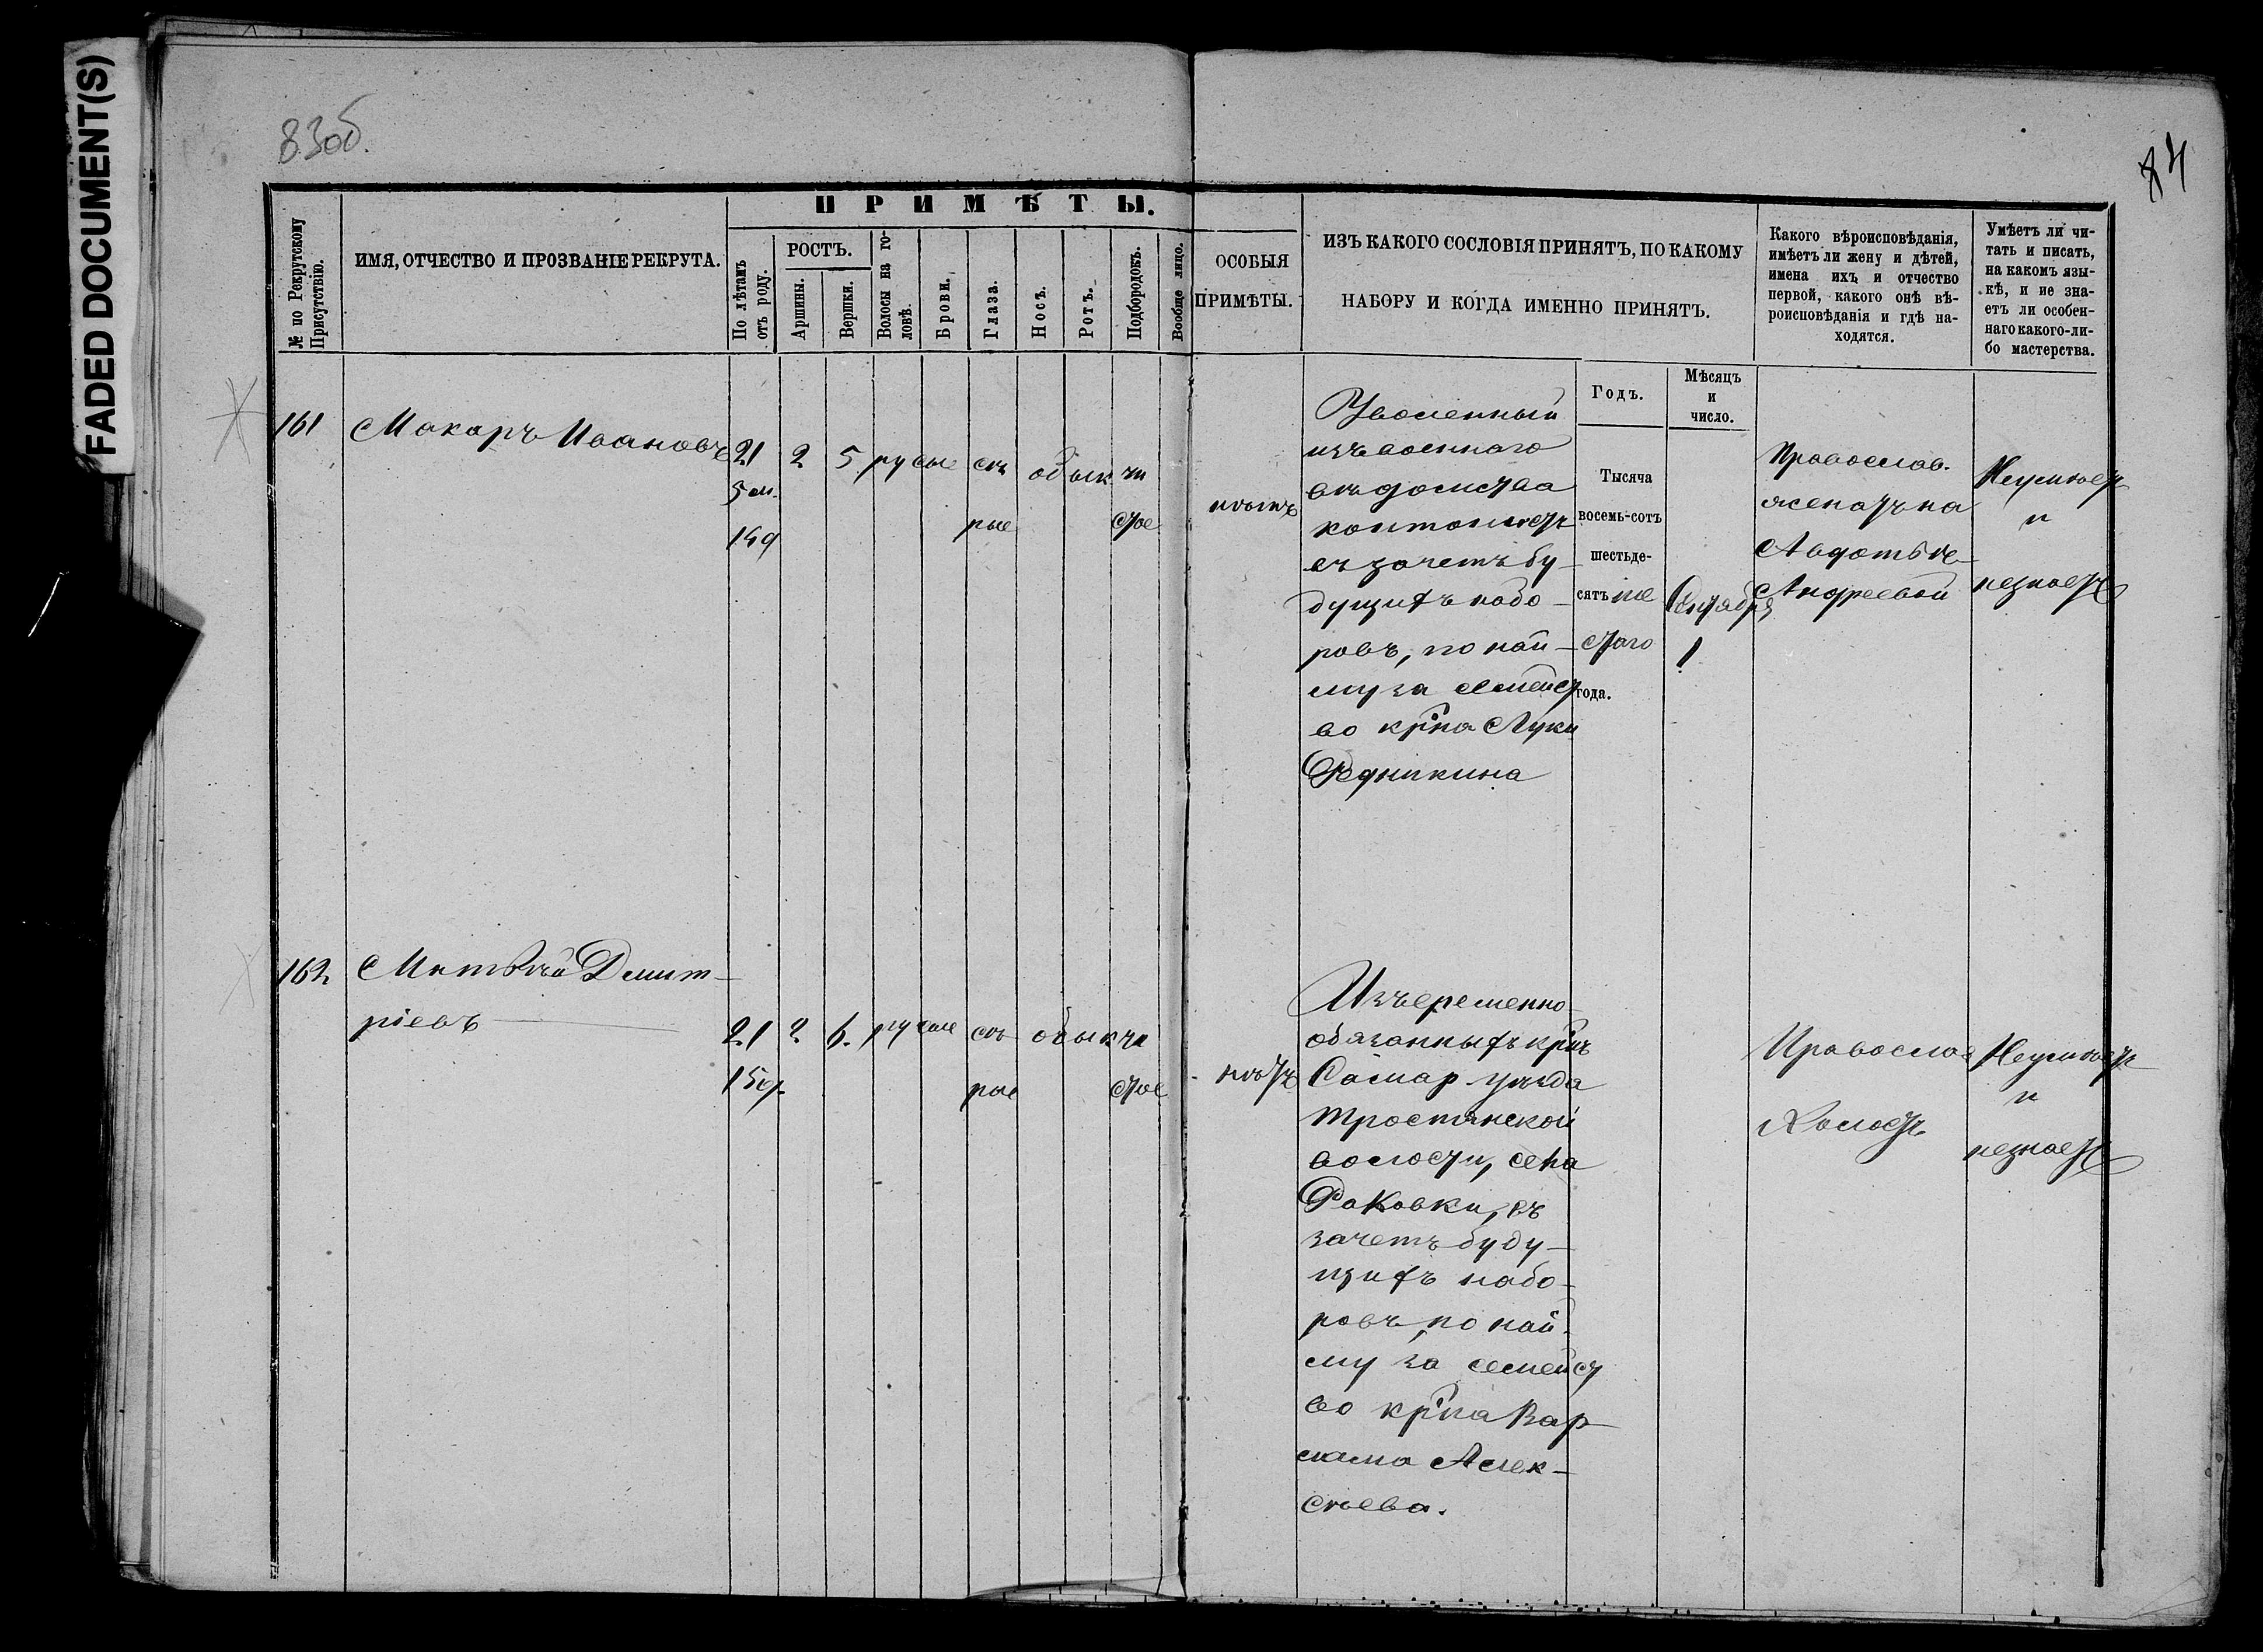 FADED DOCUMENT(S)
83об.
84
ПРИМѢТЫ.
№ по Рекрутскому Присутствію.
ИМЯ, ОТЧЕСТВО И ПРОЗВАНІЕ РЕКРУТА.
По лѣтамъ отъ роду.
РОСТЪ.
Аршины.
Вершки.
Волосы на го-
ловѣ.
Брови.
Глаза.
Носъ.
Ротъ.
Подбородокъ.
Вообще лицо.
ОСОБЫЯ
ПРИМѢТЫ.
ИЗЪ КАКОГО СОСЛОВІЯ ПРИНЯТЪ, ПО КАКОМУ
НАБОРУ И КОГДА ИМЕННО ПРИНЯТЪ.
Какого вѣроисповѣданія,
имѣетъ ли жену и дѣтей,
имена ихъ и отчество
первой, какого онѣ вѣ-
роисповѣданія и гдѣ на-
ходятся.
Умѣетъ ли чи-
тать и писать,
на какомъ язы-
кѣ, и не зна-
етъ ли особен-
наго какого-ли-
бо мастерства.
Годъ.
Мѣсяцъ
и
число.
161
Макаръ Ивановъ
21
5 м.
14 д
2
5
русые
сѣ
рые
обык чи
стое
нѣтъ
Уволенный
изъ военнаго
вѣдомства
кантонистъ
въ зачетъ бу-
дущихъ набо-
ровъ, по най-
му за семейст
во крна Луки
Рѣдникина
Тысяча
восемь-сотъ
шестьде-
сятъ ше
стаго
года.
Октября
1
Православ.
женатъ на
Авдотьѣ
Андреевой
Неумѣетъ
и
незнаетъ
162
Матвѣй Дмит-
ріевъ
21
15 д.
2
6.
русые
сѣ
рые
обык чи
стое
нѣтъ
Изъ временно-
обязанныхъ крнъ
Самар уѣзда
Тростянской
волости, села
Раковки, въ
зачетъ буду-
щихъ набо-
ровъ, по най-
му за семейст
во крна Вар-
лама Алек-
сѣева.
Православ
Холостъ
Неумѣетъ
и
незнаетъ